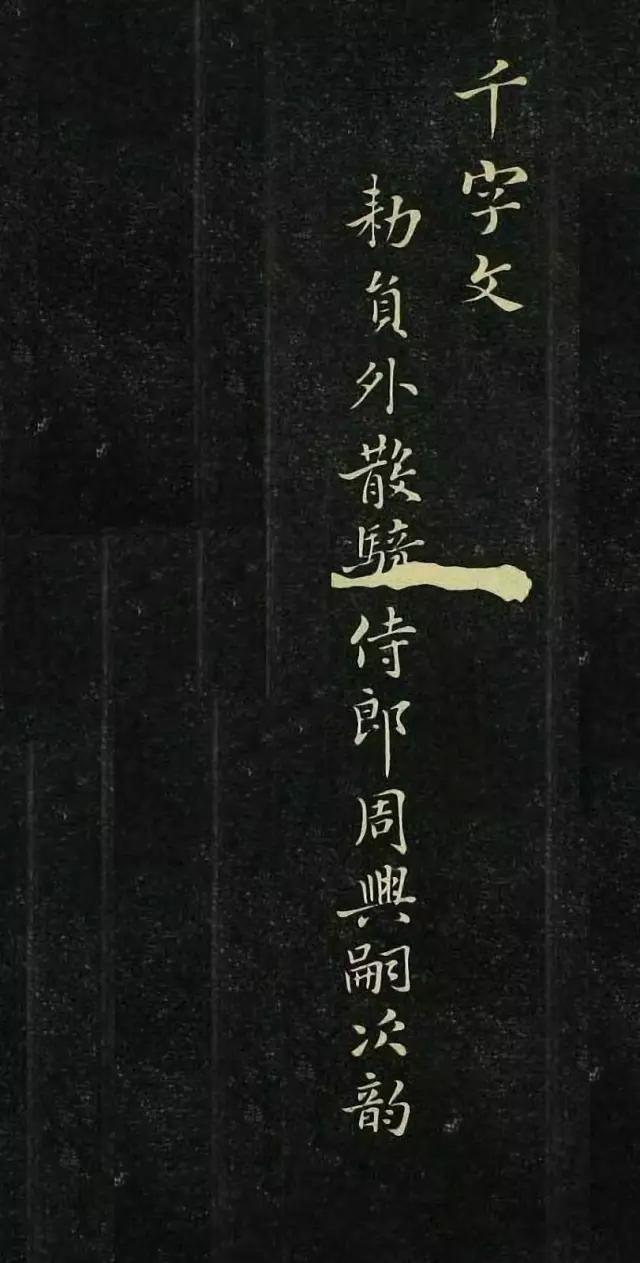 千字文
勑負外散騎侍郎周興嗣次韵